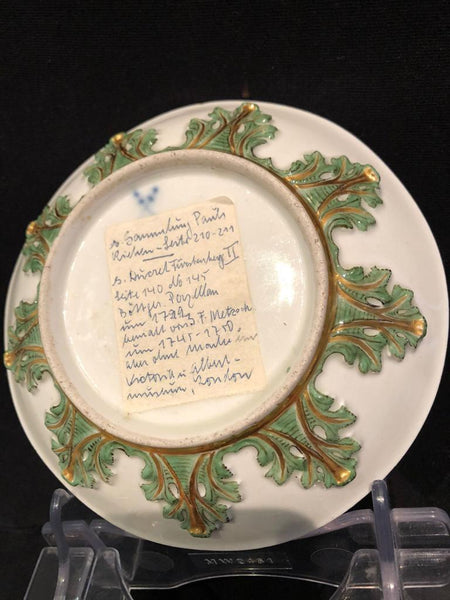 s. Sammlung Pauls
Riehen - Seite 210-211
s. Ducret Fürstenberg II
Seite 140, Ab 145
Böttger-Porzellan
um 1722
bemalt von J. F. Metzsch
um 1745-1750.
aber ohne Marke im
Victoria & Albert-
museum, London